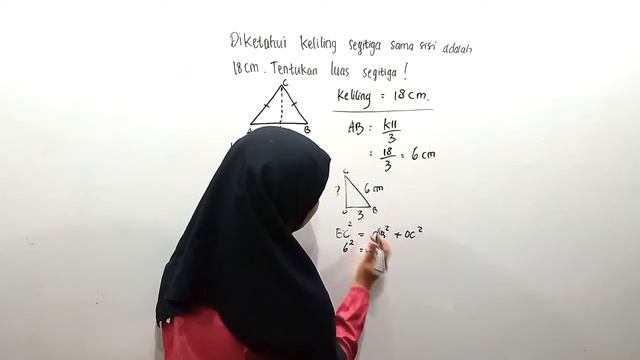 Diketahui keliling segitiga sama sisi adalah
18 cm. Tentukan luas segitiga !
C
B
Keliling = 18 cm.
AB : kll/3
: 18/3 = 6 cm
C
? 6 cm
O 3 B
BC² = OB² + OC²
6² =